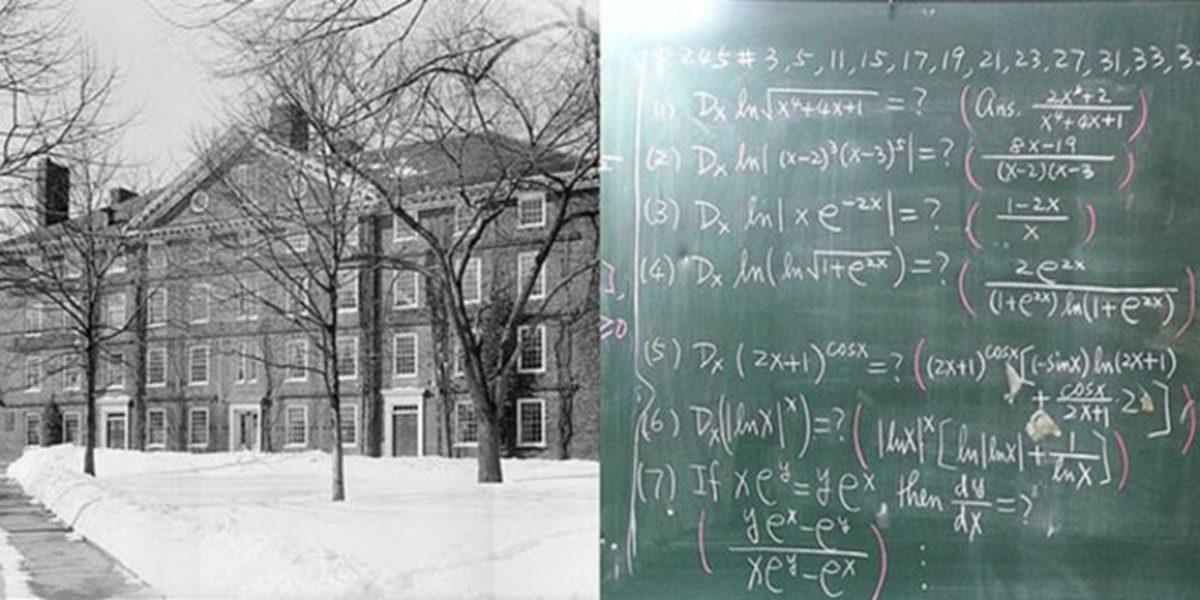 245 # 3, 5, 11, 15, 17, 19, 21, 23, 27, 31, 33, 3
(1) Dₓ ln√(x⁴+4x+1) = ? (Ans. (2x³+2)/(x⁴+4x+1))
(2) Dₓ ln|(x-2)³(x-3)⁵| = ? ((8x-19)/((x-2)(x-3))
(3) Dₓ ln|x e⁻²ˣ| = ? ((1-2x)/x)
(4) Dₓ ln(ln√(1+e²ˣ)) = ? (2e²ˣ/((1+e²ˣ)ln(1+e²ˣ)))
(5) Dₓ (2x+1)^cosx = ? ((2x+1)^cosx[(-sinx)ln(2x+1)
+ cosx/(2x+1)·2])
(6) Dₓ(|lnx|ˣ) = ? (|lnx|ˣ[ln|lnx| + 1/lnx])
(7) If xeʸ = yeˣ, then dy/dx = ?
((yeˣ-eʸ)/(xeʸ-eˣ))